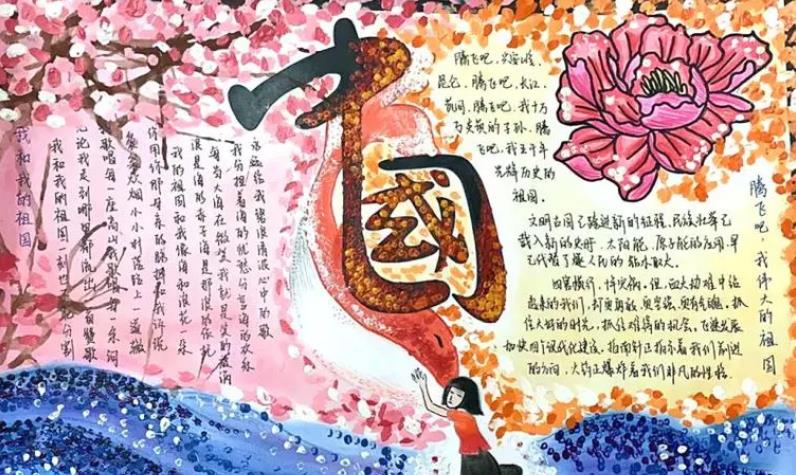 我和我的祖国
我和我的祖国一刻也不能分割
论我走到哪里都流出一首赞歌
我歌唱每一座高山我歌唱每一条河
炊烟小小村落路上一道辙
你用你那母亲的脉搏和我诉说
我的祖国和我像海和浪花一朵
浪是海的赤子海是那浪的依托
每当大海在微笑我就是笑的旋涡
我分担着海的忧愁分享海的欢乐
永远给我碧浪清波心中的歌
中國
腾飞吧，
昆仑，腾飞吧，长江，
黄河，腾飞吧，我千万
炎黄的子孙，腾
飞吧，我五千年
光辉历史的
祖国。
文明古国已踏进新的征程，民族壮举已
载入新的史册，太阳能，原子能的应用，早
已代替了燧人氏的钻木取火。
的我们，却更勇敢，更坚强，抓
住大好的时光，抓住难得的机会，飞速发展
加快四个现代化建设，指南针正指示着我们前进
的方向，火药正爆炸着我们非凡的性格。
腾飞吧，我伟大的祖国